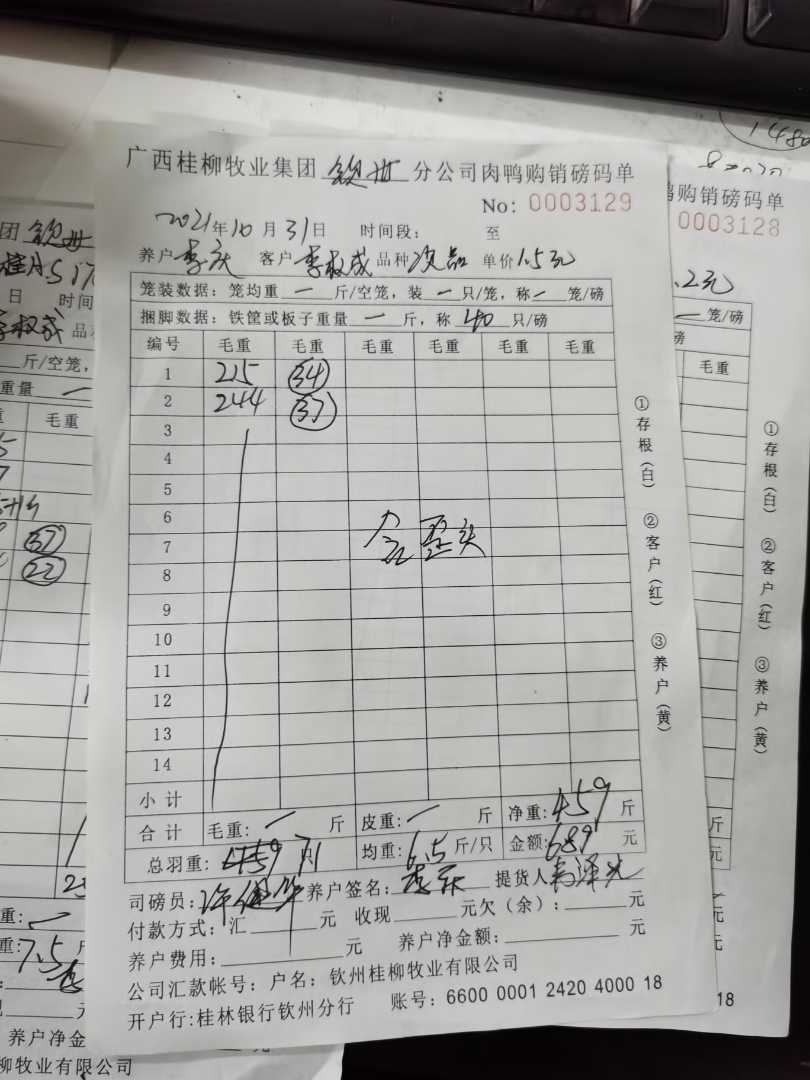 广西桂柳牧业集团 钦州 分公司肉鸭购销磅码单
No: 0003129
2021年10月31日 时间段: 至
养户 李庆 客户 李权成 品种 次品 单价 1.5元
笼装数据: 笼均重 一 斤/空笼, 装 一 只/笼, 称 一 笼/磅
捆脚数据: 铁筐或板子重量 一 斤, 称 40 只/磅
编号 毛重 毛重 毛重 毛重 毛重 毛重
1 215 34
2 244 37
3
4
5
6
7
8
9
10
11
12
13
14
小计
合计 毛重: 一 斤 皮重: 一 斤 净重: 459 斤
总羽重: 71 只 均重: 6.5 斤/只 金额: 689 元
司磅员: 养户签名: 李庆 提货人
付款方式: 汇 元 收现 元欠(余): 元
养户费用: 元 养户净金额: 元
公司汇款帐号: 户名: 钦州桂柳牧业有限公司
开户行:桂林银行钦州分行 账号: 6600 0001 2420 4000 18
①存根(白) ②客户(红) ③养户(黄)
购销磅码单
0003128
.2元
一 笼/磅
磅
毛重
①存根(白) ②客户(红) ③养户(黄)
斤
元
元
元
18
团 钦州
日 时间
李权成 品
斤/空笼,
重量 一
毛重
37
22
重: 一
重: 7.5
元
养户净金
柳牧业有限公司